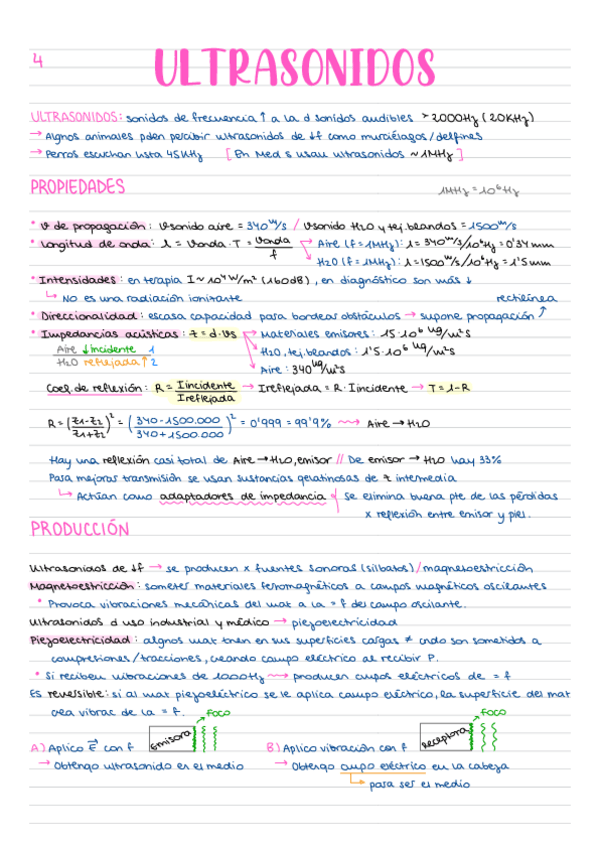 4
ULTRASONIDOS
ULTRASONIDOS: sonidos de frecuencia ↑ a la d sonidos audibles > 2000Hz (20KHz)
→ Algnos animales pden percibir ultrasonidos de ↓f como murciélagos/delfines
→ Perros escuchan hsta 45KHz [En Med s usan ultrasonidos ~ 1MHz]
PROPIEDADES 1MHz = 10⁶Hz
* v de propagación: vsonido aire = 340 m/s / vsonido H2O y tej. blandos = 1500 m/s
* Longitud de onda: λ = vonda · T = vonda/f → Aire (f=1MHz): λ = 340 m/s/10⁶Hz = 0'34 mm
→ H2O (f=1MHz): λ = 1500 m/s/10⁶Hz = 1'5 mm
* Intensidades: en terapia I ~ 10⁴ W/m² (160dB), en diagnóstico son más ↓
↳ No es una radiación ionizante rectilínea
* Direccionalidad: escasa capacidad para bordear obstáculos → supone propagación ↑
* Impedancias acústicas: z = d · vs → Materiales emisores: 15·10⁶ kg/m²s
Aire ↓incidente 1 → H2O, tej. blandos: 1'5·10⁶ kg/m²s
H2O reflejada ↑ 2 → Aire: 340 kg/m²s
Coef. de reflexión: R = Iincidente/Ireflejada → Ireflejada = R · Iincidente → T = 1-R
R = (z1-z2/z1+z2)² = (340-1500.000/340+1500.000)² = 0'999 = 99'9% ⟿ Aire → H2O
Hay una reflexión casi total de Aire → H2O, emisor // De emisor → H2O hay 33%
Para mejorar transmisión se usan sustancias gelatinosas de z intermedia
↳ Actúan como adaptadores de impedancia → se elimina buena pte de las pérdidas
x reflexión entre emisor y piel.
PRODUCCIÓN
Ultrasonidos de ↓f → se producen x fuentes sonoras (silbatos)/magnetoestricción
Magnetoestricción: someter materiales ferromagnéticos a campos magnéticos oscilantes
* Provoca vibraciones mecánicas del mat a la = f del campo oscilante.
Ultrasonidos d uso industrial y médico → piezoelectricidad
Piezoelectricidad: algnos mat tnen en sus superficies cargas ≠ cndo son sometidos a
compresiones/tracciones, creando campo eléctrico al recibir P.
* Si reciben vibraciones de 1000Hz ⟿ producen cmpos eléctricos de = f
Es reversible: si al mat piezoeléctrico se le aplica campo eléctrico, la superficie del mat
crea vibrac de la = f. → foco → foco
A) Aplico E⃗ con f Emisora B) Aplico vibración con f Receptora
→ Obtengo ultrasonido en el medio → Obtengo cmpo eléctrico en la cabeza
↳ para ser el medio